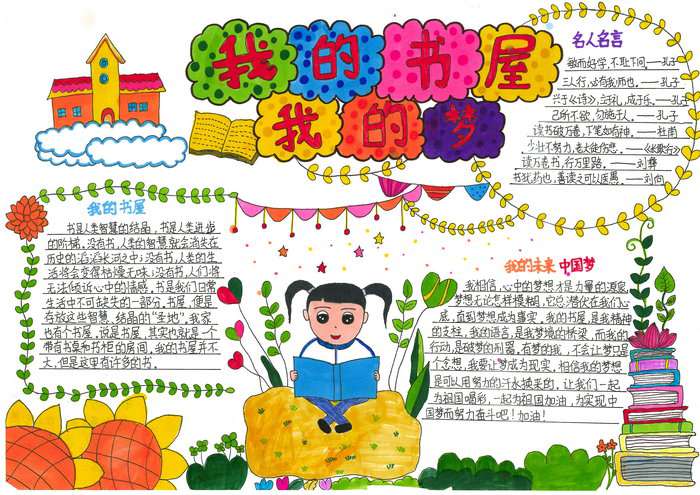 我的书屋
我的梦
名人名言
敏而好学,不耻下问。——孔子
三人行,必有我师也。——孔子
兴于《诗》,立于礼,成于乐。——孔子
己所不欲,勿施于人。——孔子
读书破万卷,下笔如有神。——杜甫
少壮不努力,老大徒伤悲。——《长歌行》
读万卷书,行万里路。——刘彝
书犹药也,善读之可以医愚。——刘向
我的书屋
书是人类智慧的结晶,书是人类进步
的阶梯,没有书,人类的智慧就会消失在
历史的滔滔长河之中;没有书,人类的生
活将会变得枯燥无味;没有书,人们将
无法倾诉心中的情感。书是我们日常
生活中不可缺失的一部分。书屋,便是
存放这些智慧结晶的“圣地”。我家
也有个书屋,说是书屋,其实也就是一个
带有书桌和书柜的房间,我的书屋并不
大,但是这里有许多的书。
我的未来 中国梦
我相信,心中的梦想才是力量的源泉,
梦想无论怎样模糊,它总潜伏在我们心
底,直到梦想成为事实。我的书屋,是我精神
的支柱,我的语言,是我梦境的桥梁,而我的
行动,是破梦的利器,有梦的我,不会让梦只是
个念想,我要让梦成为现实,相信我的梦想
是可以用努力的汗水换来的,让我们一起
为祖国喝彩,一起为祖国加油,为实现中
国梦而努力奋斗吧!加油!